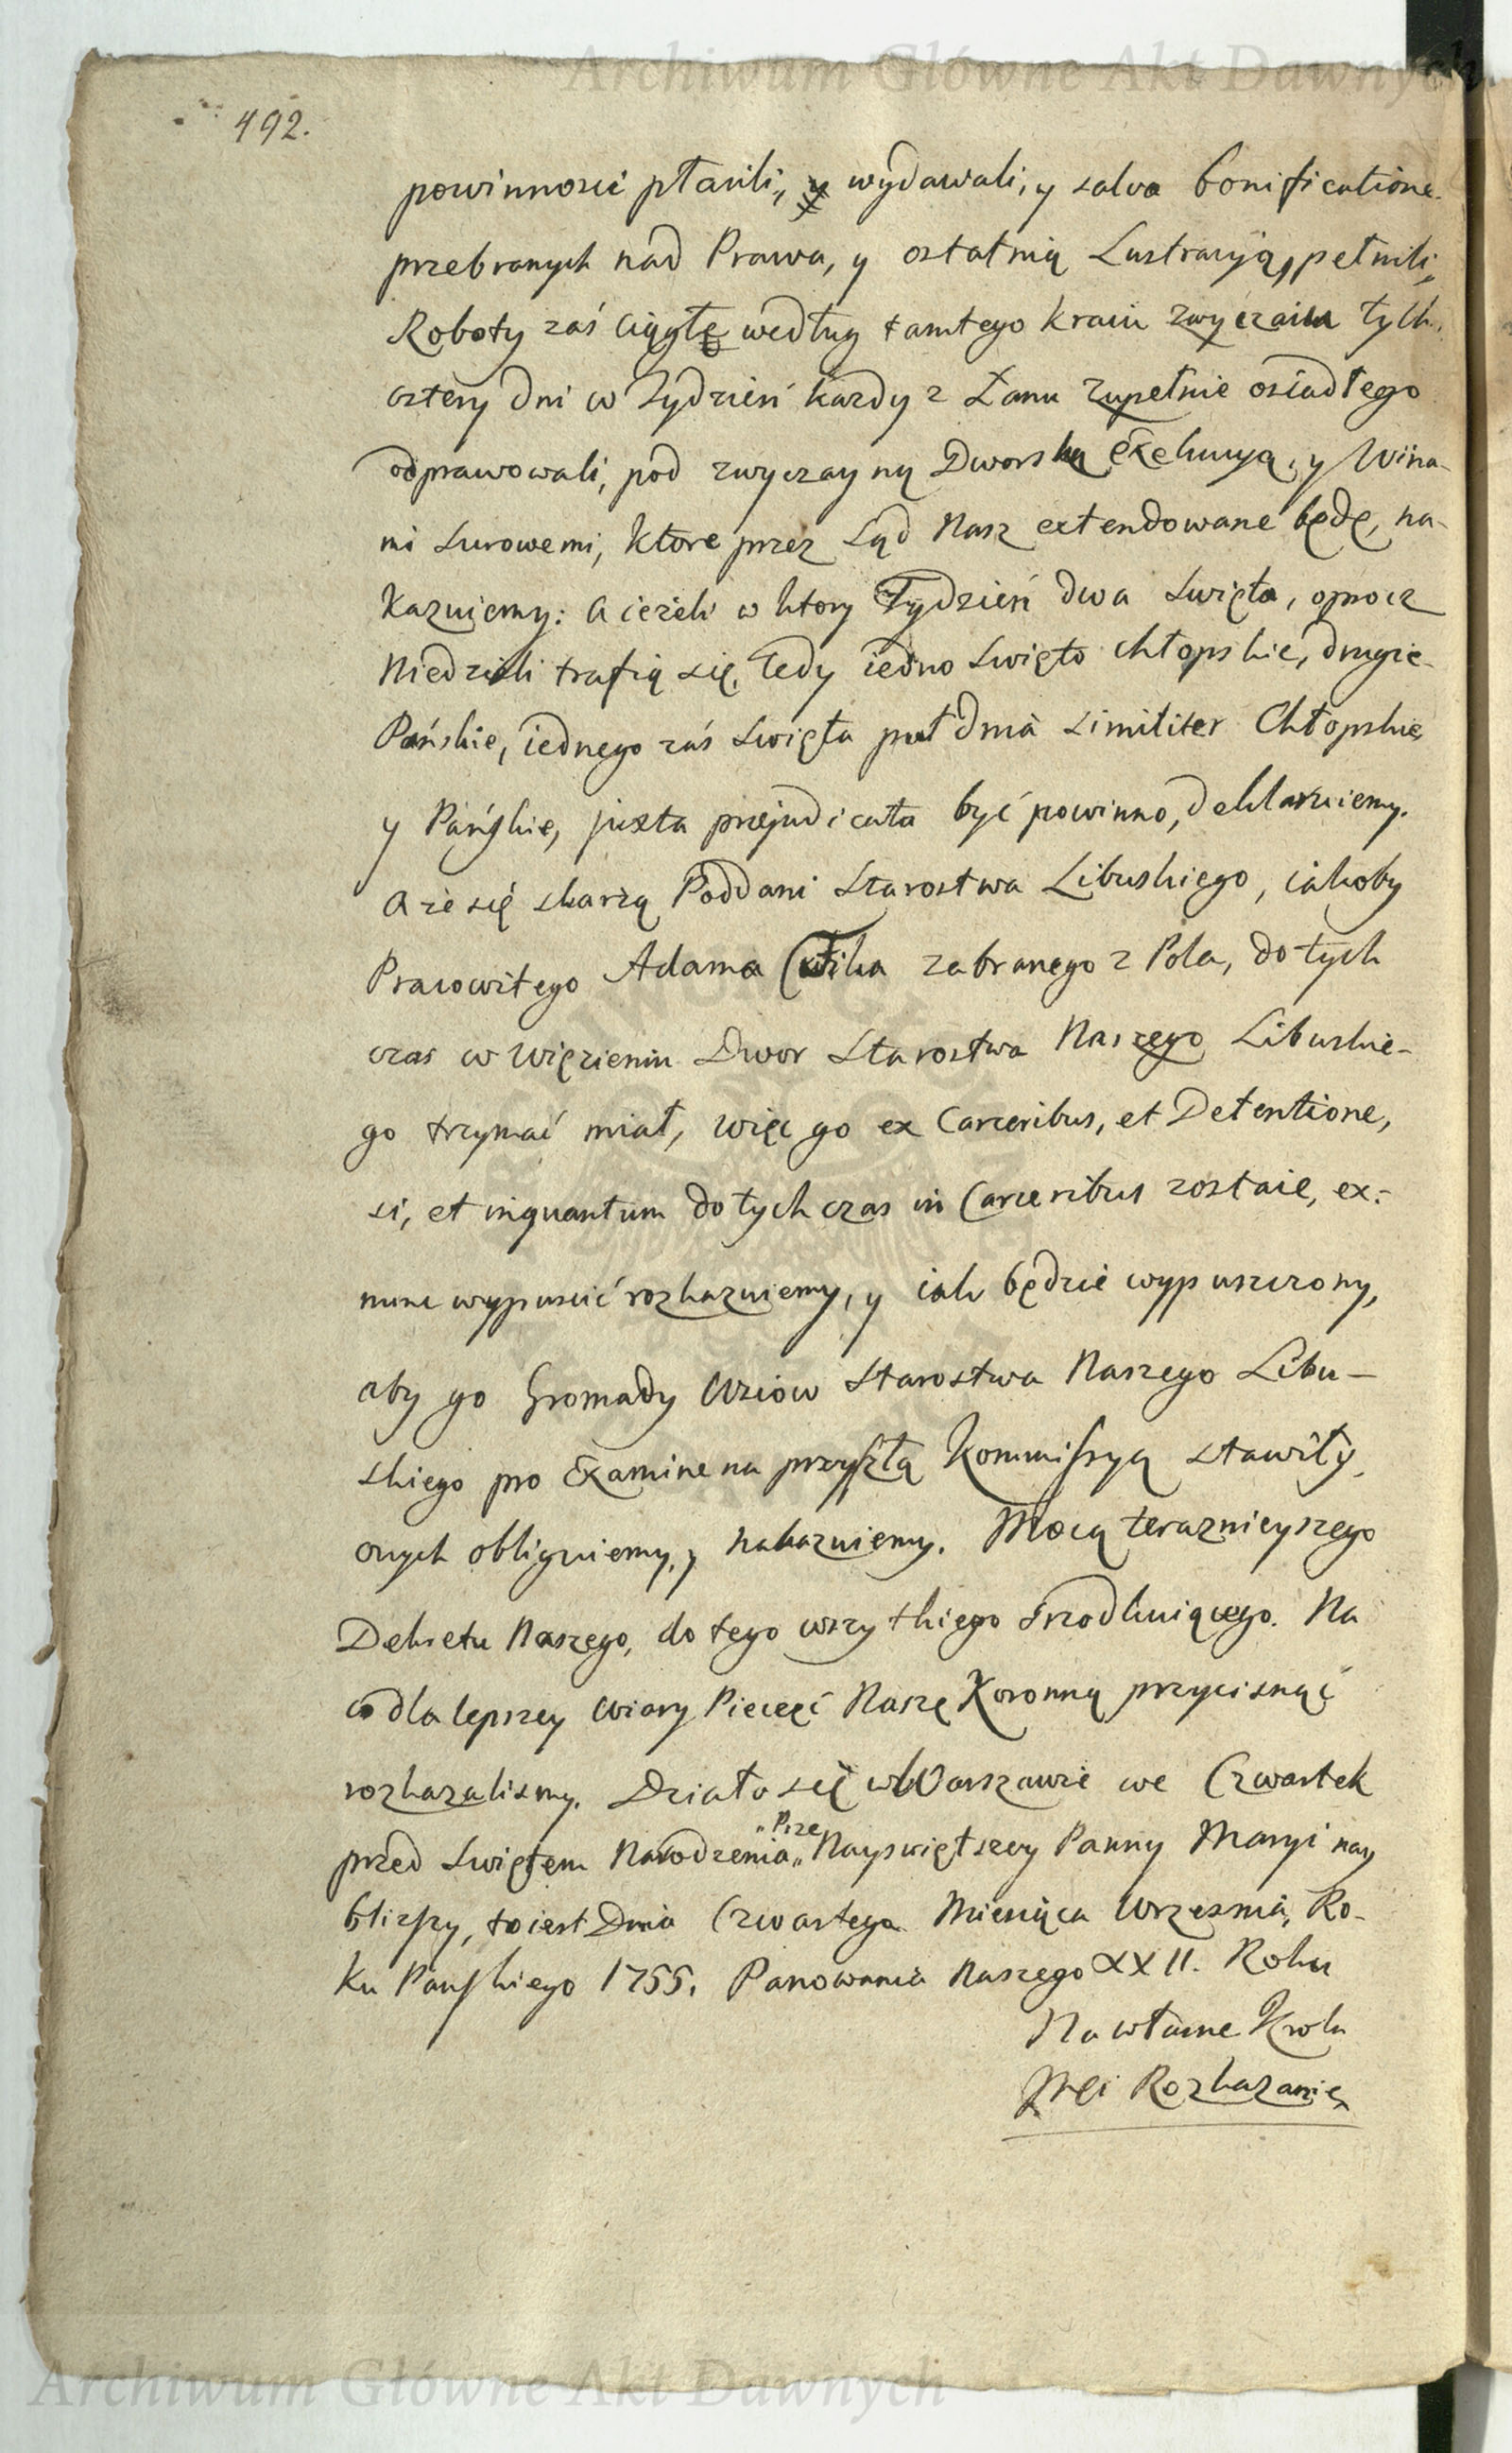 Archiwum Główne Akt Dawnych
492.
powinnosci płacili, y wydawali, y salva bonificatione
przebranych nad Prawa, y ostatnią Lustracyią, pełnili,
Roboty zaś ciągłę według tamtego kraiu zwyczaiu tylk.
cztery dni w Tydzień kazdy z Łanu zupełnie osiadłego
odprawowali, pod zwyczayną Dworską exekucyą, y Wina-
mi surowemi, ktore przez Sąd Nasz extendowane będę, na-
kazuiemy: a ieżeli w ktory Tydzień dwa swięta, oprocz
Niedzieli trafią się, Tedy iedno swięto chłopskie, drugie
Pańskie, iednego zaś swięta puł dnia similiter Chłopskie
y Pańskie, juxta prejudicata być powinno, deklaruiemy.
a że się skarzą Poddani Starostwa Libuskiego, iakoby
Pracowitego Adama zabranego z Pola, do tych
czas w więzieniu Dwor Starostwa Naszego Libuskie-
go trzymać miał, więc go ex Carceribus, et Detentione,
si, et inquantum do tych czas in Carceribus zostaie, ex-
nunc wypuscić rozkazuiemy, y iak będzie wypuszczony,
aby go Gromady Wsiow Starostwa Naszego Libu-
skiego pro Examine na przyszłą Kommissyą stawiły,
onych obliguiemy, y nakazuiemy. Mocą teraznieyszego
Dekretu Naszego, do tego wszytkiego srzodkuiącego. Na
co dla lepszey wiary Pieczęć Naszę Koronną przycisnąć
rozkazalismy. Działo się w Warszawie we Czwartek
przed swiętem Narodzenia „Prze„ Nayswiętszey Panny Maryi nay
bliszy, to iest Dnia Czwartego Miesiąca Wrzesnia, Ro-
ku Pańskiego 1755. Panowania Naszego XXII. Roku
Na własne Krola
Jmci Rozkazanie
Archiwum Główne Akt Dawnych